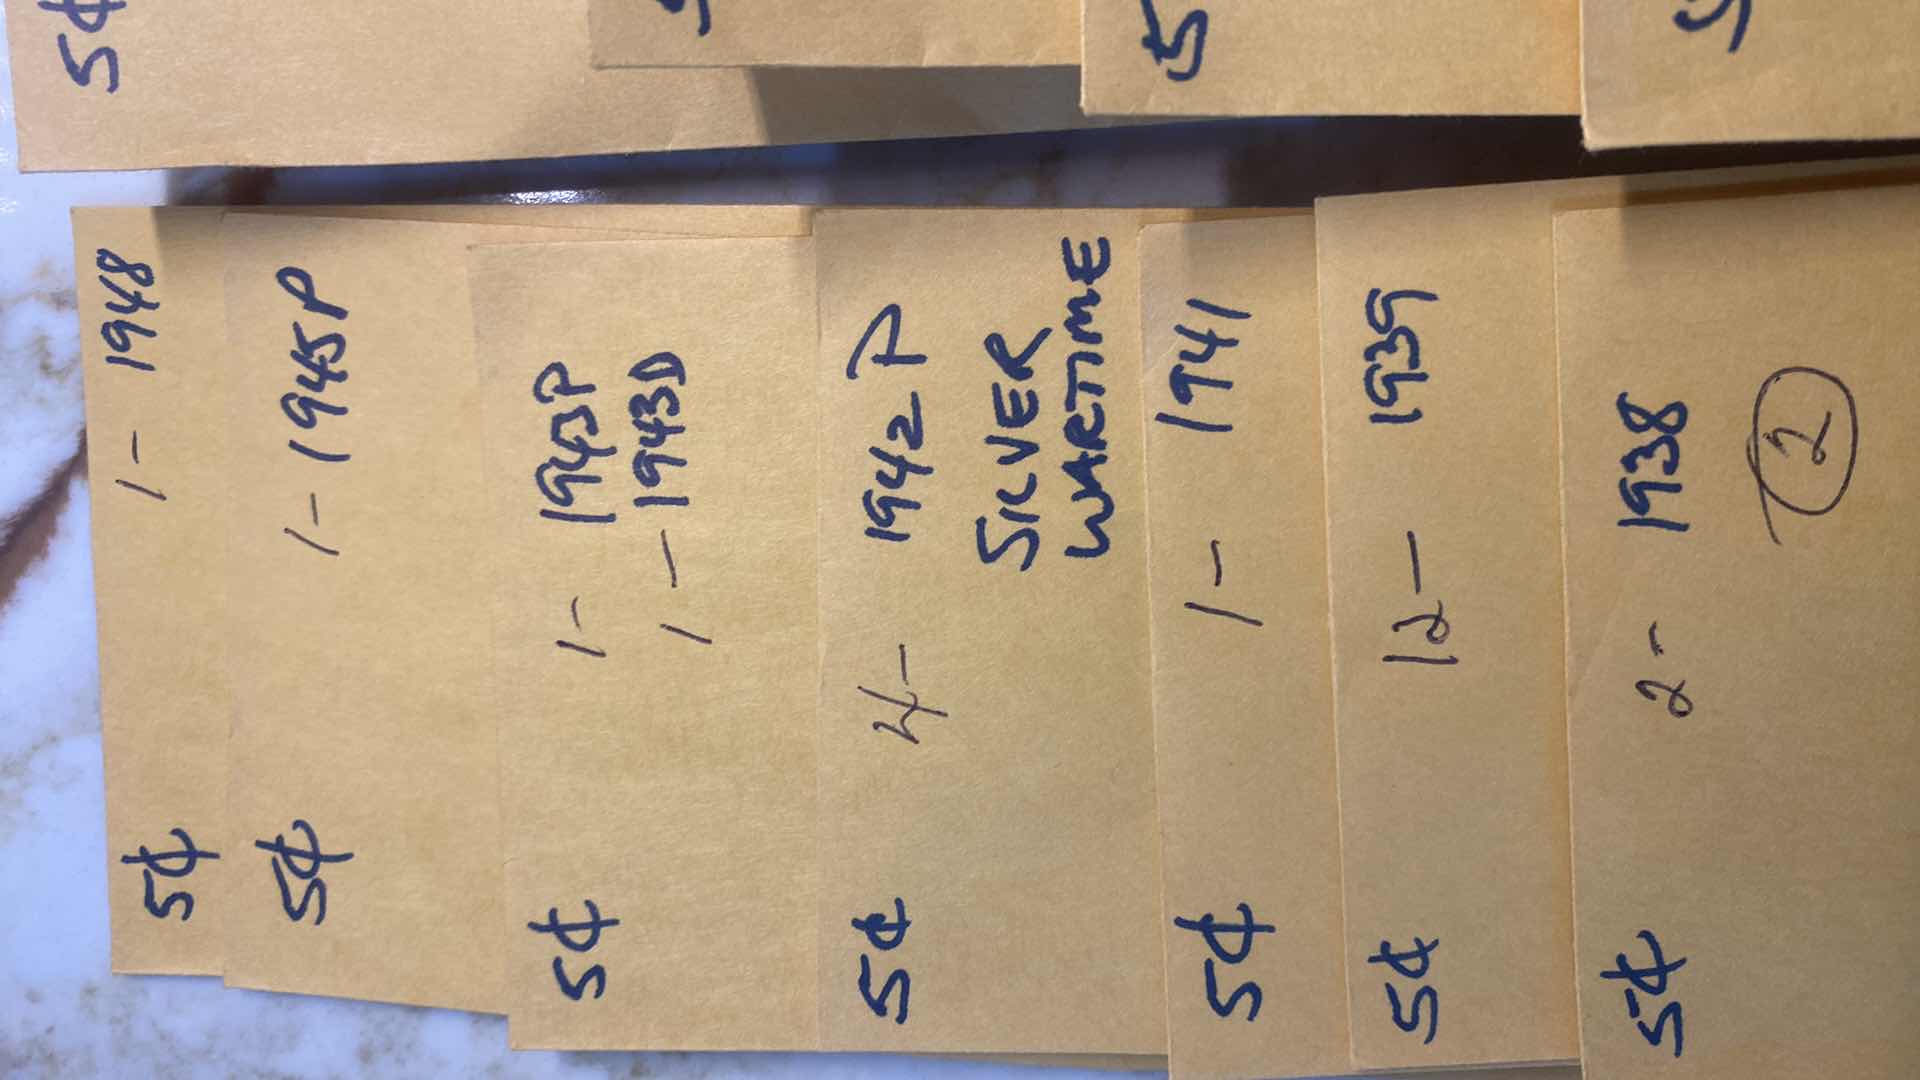 5¢
5
5¢ 1- 1948
5¢ 1- 1945P
5¢ 1- 1943P
1- 1943D
5¢ 4- 1942P
SILVER
WARTIME
5¢ 1- 1941
5¢ 12- 1939
5¢ 2- 1938
2